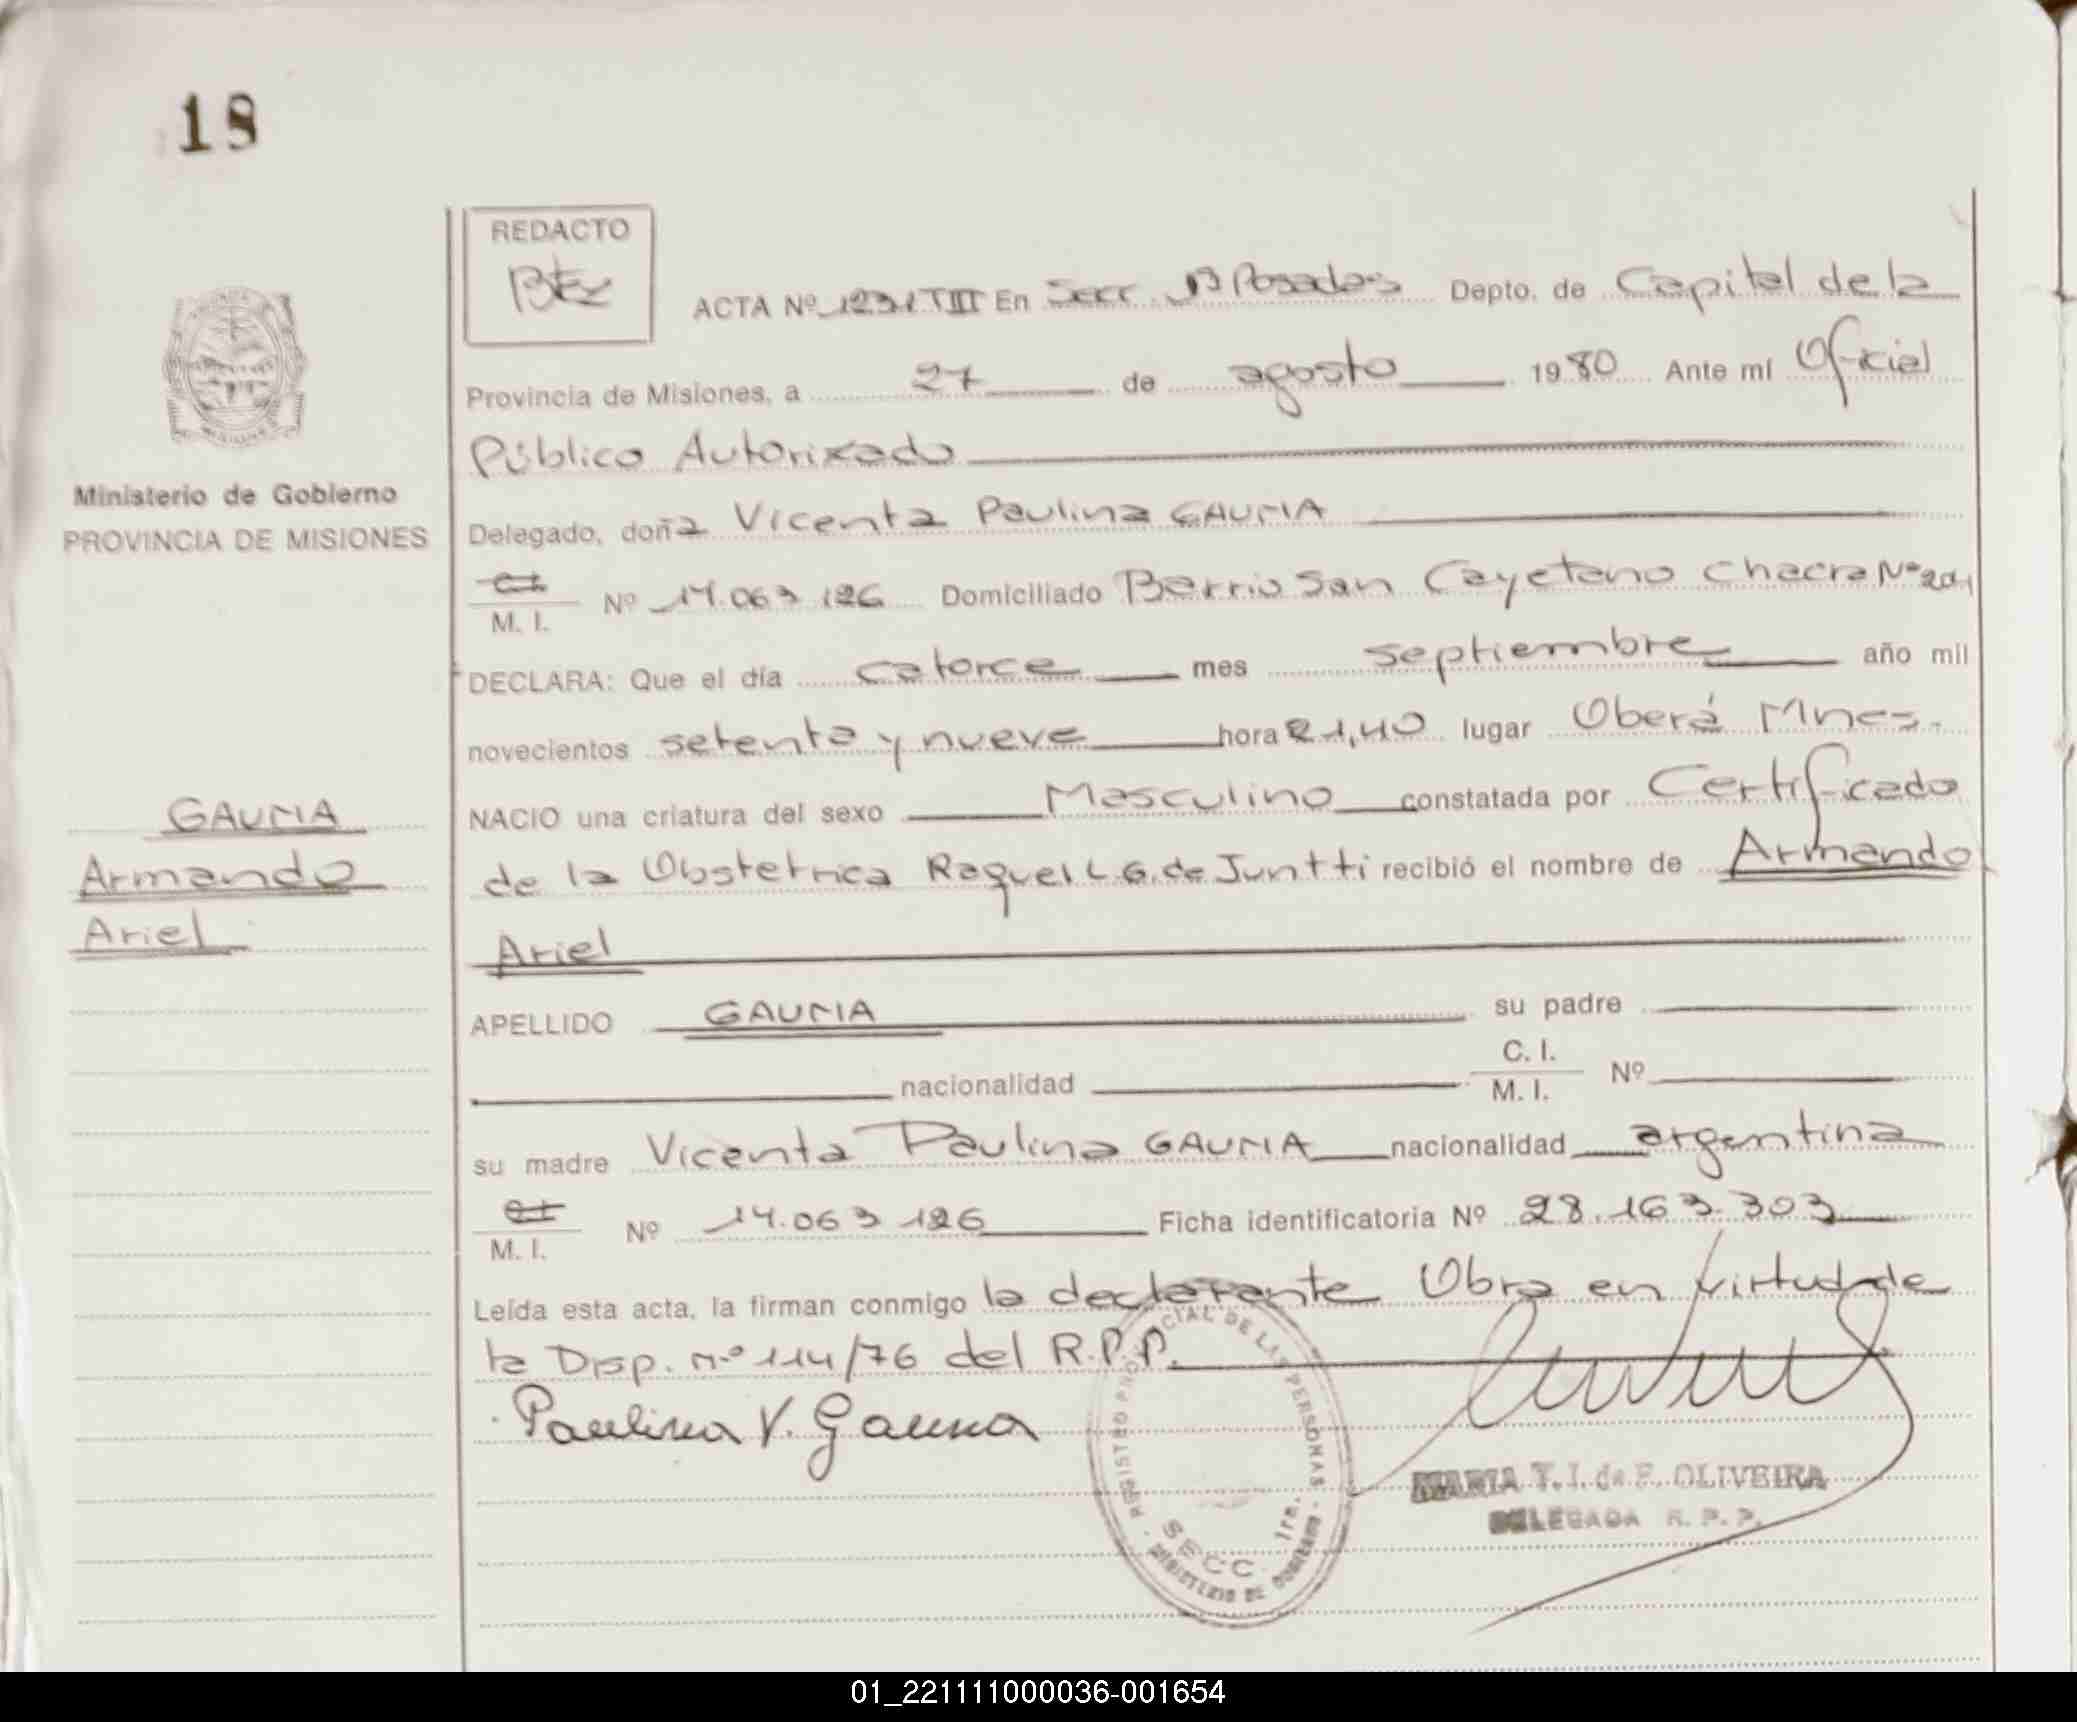 18
REDACTO
ACTA Nº 1231 TIII En Secc. 1ª Posadas Depto. de Capital de la
Provincia de Misiones, a 27 de agosto 1980 Ante mí Oficial
Público Autorizado
Ministerio de Gobierno
PROVINCIA DE MISIONES
Delegado, doña Vicenta Paulina GAUNA
C.I. M. I. Nº 14.063 126 Domiciliado Barrio San Cayetano Chacra Nº 201
DECLARA: Que el día catorce mes septiembre año mil
novecientos setenta y nueve hora 21,40 lugar Oberá Mnes.
NACIO una criatura del sexo Masculino constatada por Certificado
de la Obstetrica Raquel L. G. de Juntti recibió el nombre de Armando
Ariel
GAUNA
Armando
Ariel
APELLIDO GAUNA su padre
nacionalidad C. I. M. I. Nº
su madre Vicenta Paulina GAUNA nacionalidad argentina
C.I. M. I. Nº 14.063 126 Ficha identificatoria Nº 28.163.303
Leída esta acta, la firman conmigo la declarante Obra en virtud de
la Disp. nº 114/76 del R.P.P.
Paulina V. Gauna
REGISTRO PROVINCIAL DE LAS PERSONAS
SECC. 1ra.
MINISTERIO DE GOBIERNO
MARIA T. I. de F. OLIVEIRA
DELEGADA R. P. P.
01_221111000036-001654